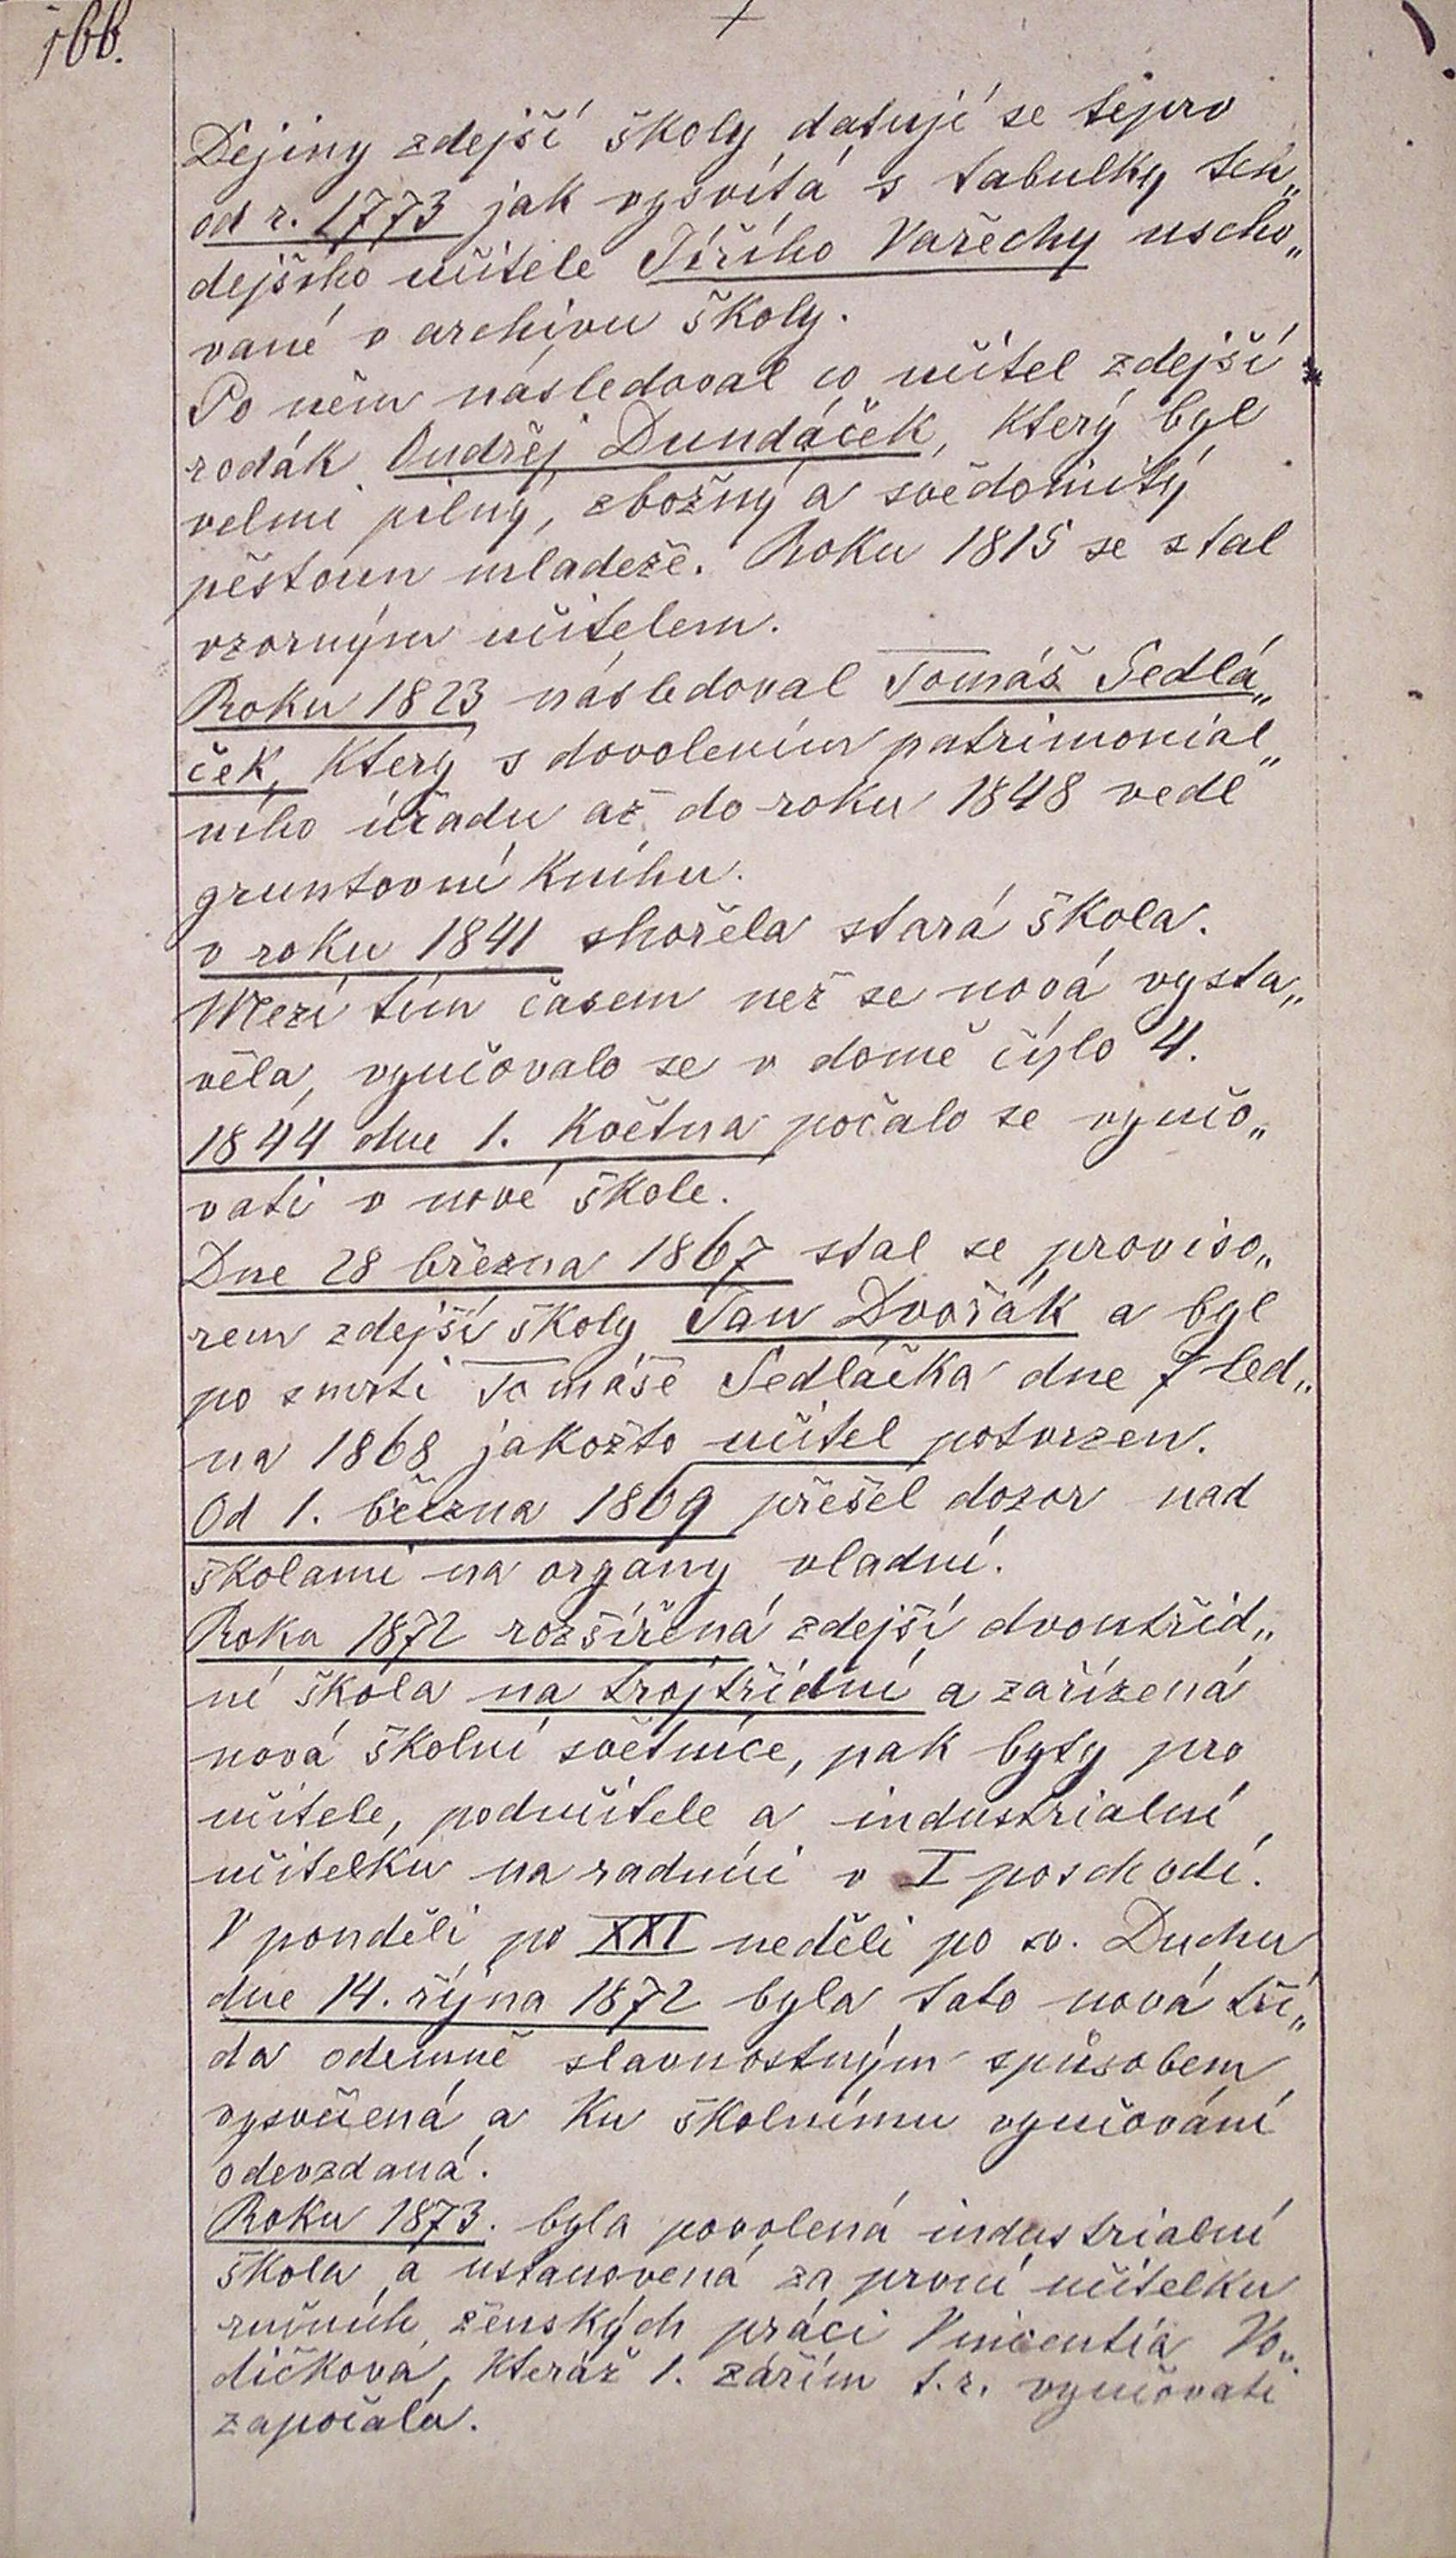 166.
Dějiny zdejší školy datují se tepro
od r. 1773 jak vysvítá s tabulky teh„
dejšího učitele Jiřího Vařechy uscho„
vané v archivu školy.
Po něm následoval co učitel zdejší
rodák Ondřej Dundáček, který byl
velmi pilný, zbožný a svědomitý
pěstoun mládeže. Roku 1815 se stal
vzorným učitelem.
Roku 1823 následoval Tomáš Sedlá„
ček, který s dovolením patrimonial„
ního úřadu až do roku 1848 vedl
gruntovní knihu.
v roku 1841 shořela stará škola.
Mezi tím časem než se nová vysta„
věla, vyučovalo se v domě číslo 4.
1844 dne 1. Května počalo se vyučo„
vati v nové škole.
Dne 28 března 1867 stal se proviso„
rem zdejší školy Jan Dvořák a byl
po smrti Tomáše Sedláčka dne 7 led„
na 1868 jakožto učitel potvrzen.
Od 1. března 1869 přešel dozor nad
školami na organy vladní.
Roku 1872 rozšířená zdejší dvoutříd„
ní škola na trojtřídní a zařízená
nová školní světnice, pak byty pro
učitele, podučitele a industrialní
učitelku na radnici v I poschodí.
V pondělí po XXI neděli po sv. Duchu
dne 14. října 1872 byla tato nová tří„
da odemně slavnostným spůsobem
vysvěcená a Ku školnímu vyučování
odevzdaná.
Roku 1873. byla povolená industrialní
škola a ustanovená za první učitelku
ručních ženských prácí Vincentia Vo„
dičkova, kteráž 1. zářím t. r. vyučovati
započala.